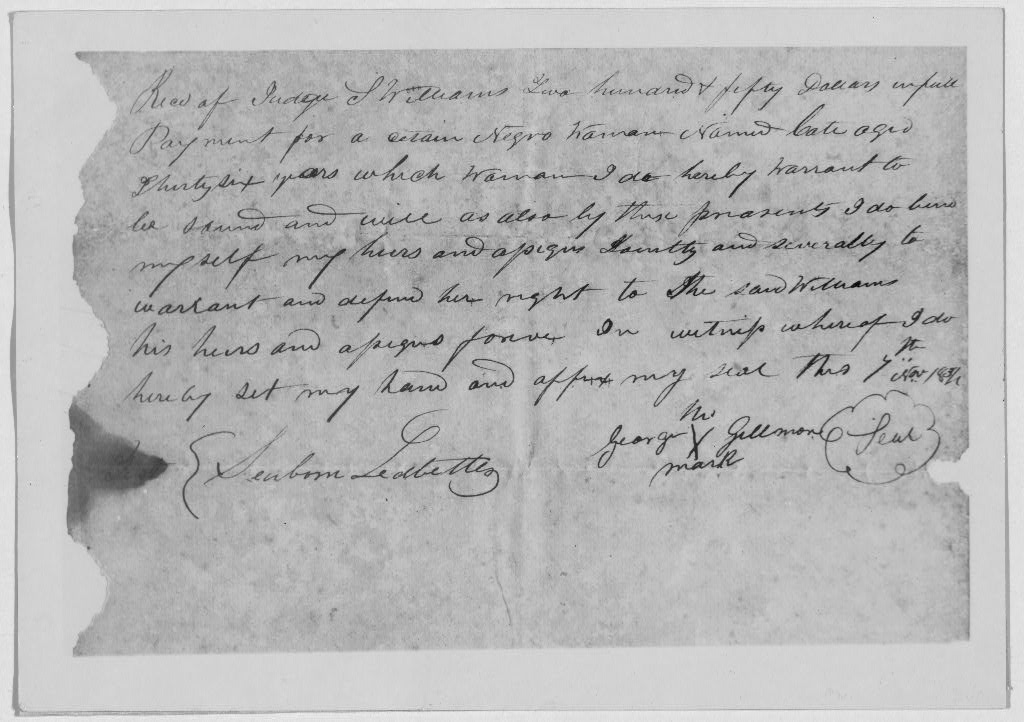 Recd of Judge S Williams Two hundred & fifty Dollars in full
Payment for a certain Negro Woman Named Cate aged
Thirty six years which Woman I do hereby Warrant to
be sound and well as also by these presents I do bind
myself my heirs and assigns Jointly and severally to
warrant and defend her right to the said Williams
his heirs and assigns forever In witness whereof I do
hereby set my hand and affix my seal this 7th Nov
his
George X Gillmore Seal
mark
Seaborn Ledbetter